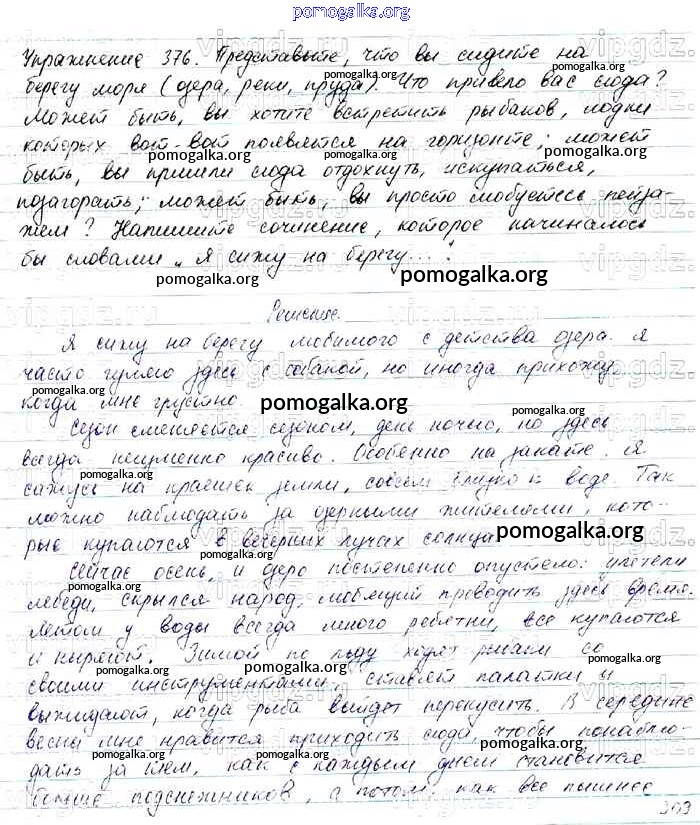 pomogalka.org
Упражнение 376. Представьте, что вы сидите на
берегу моря (озера, реки, пруда). Что привело вас сюда?
Может быть, вы хотите встретить рыбаков, лодки
которых вот-вот появятся на горизонте; может
быть, вы пришли сюда отдохнуть, искупаться,
позагорать; может быть, вы просто любуетесь пейза-
жем? Напишите сочинение, которое начиналось
бы словами „Я сижу на берегу...".
pomogalka.org
Решение.
Я сижу на берегу любимого с детства озера. Я
часто гуляю здесь с собакой, но иногда прихожу,
когда мне грустно.
pomogalka.org
Сезон сменяется сезоном, день ночью, но здесь
всегда неизменно красиво. Особенно на закате. Я
сажусь на краешек земли, совсем близко к воде. Так
можно наблюдать за озерными жителями, кото-
рые купаются в вечерних лучах солнца.
pomogalka.org
Сейчас осень, и озеро постепенно опустело: улетели
лебеди, скрылся народ, любящий проводить здесь время.
Летом у воды всегда много ребятни, все купаются
и ныряют. Зимой по льду ходят рыбаки со
своими инструментами, ставят палатки и
выжидают, когда рыба выйдет перекусить. В середине
весны мне нравится приходить сюда, чтобы понаблю-
дать за тем, как с каждым днем становится
больше подснежников, а потом, как все пышнее
303